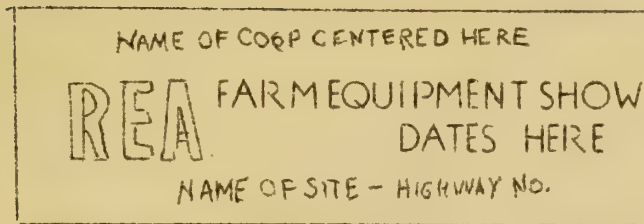 NAME OF COOP CENTERED HERE
REA FARM EQUIPMENT SHOW
DATES HERE
NAME OF SITE - HIGHWAY NO.